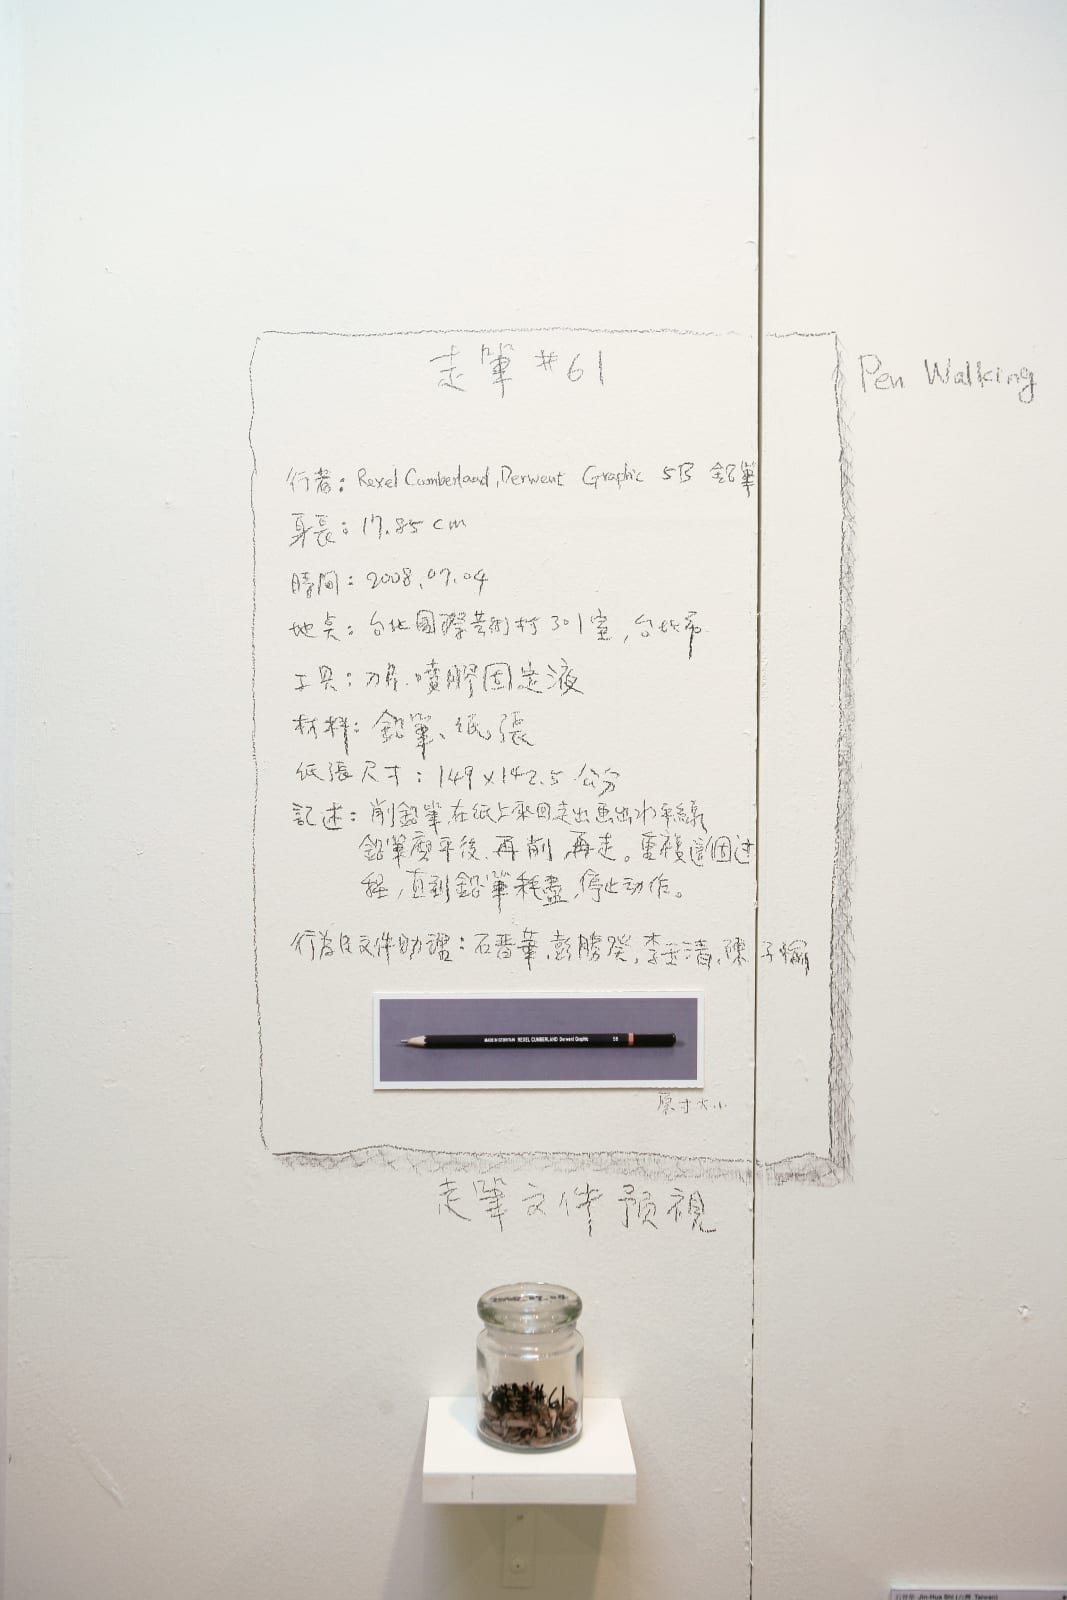 走筆 #61
Pen Walking
行者：Rexel Cumberland, Derwent Graphic 5B 鉛筆
身長：17.85 cm
時間：2008.07.04
地点：台北國際芸術村 301室, 台北市
工具：刀片、噴膠固定液
材料：鉛筆、纸張
纸張尺寸：149 x 142.5 公分
記述：削鉛筆在纸上來回走出画出水平線
鉛筆磨平後, 再削, 再走。重複這個过
程, 直到鉛筆耗盡, 停止动作。
行為及文件助理：石晋華, 彭勝癸, 李玉清, 陳子慵
MADE IN GT BRITAIN REXEL CUMBERLAND Derwent Graphic 5B
原寸大小
走筆文件预視
走筆#61
石晉華 Jin-Hua Shi (台灣 Taiwan)